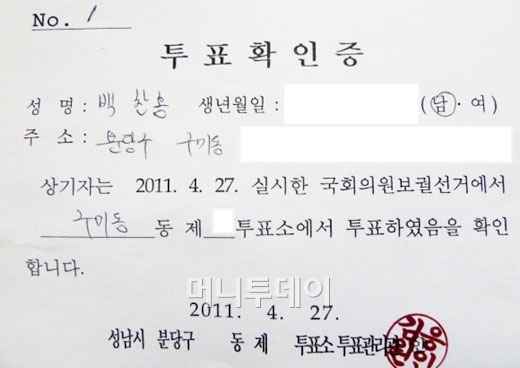 No. 1
투표확인증
성 명 : 백 찬홍 생년월일 : (남 · 여)
주 소 : 분당구 구미동
상기자는 2011. 4. 27. 실시한 국회의원보궐선거에서
구미동 동 제 투표소에서 투표하였음을 확인
합니다.
머니투데이
2011. 4. 27.
성남시 분당구 동 제 투표소 투표관리관